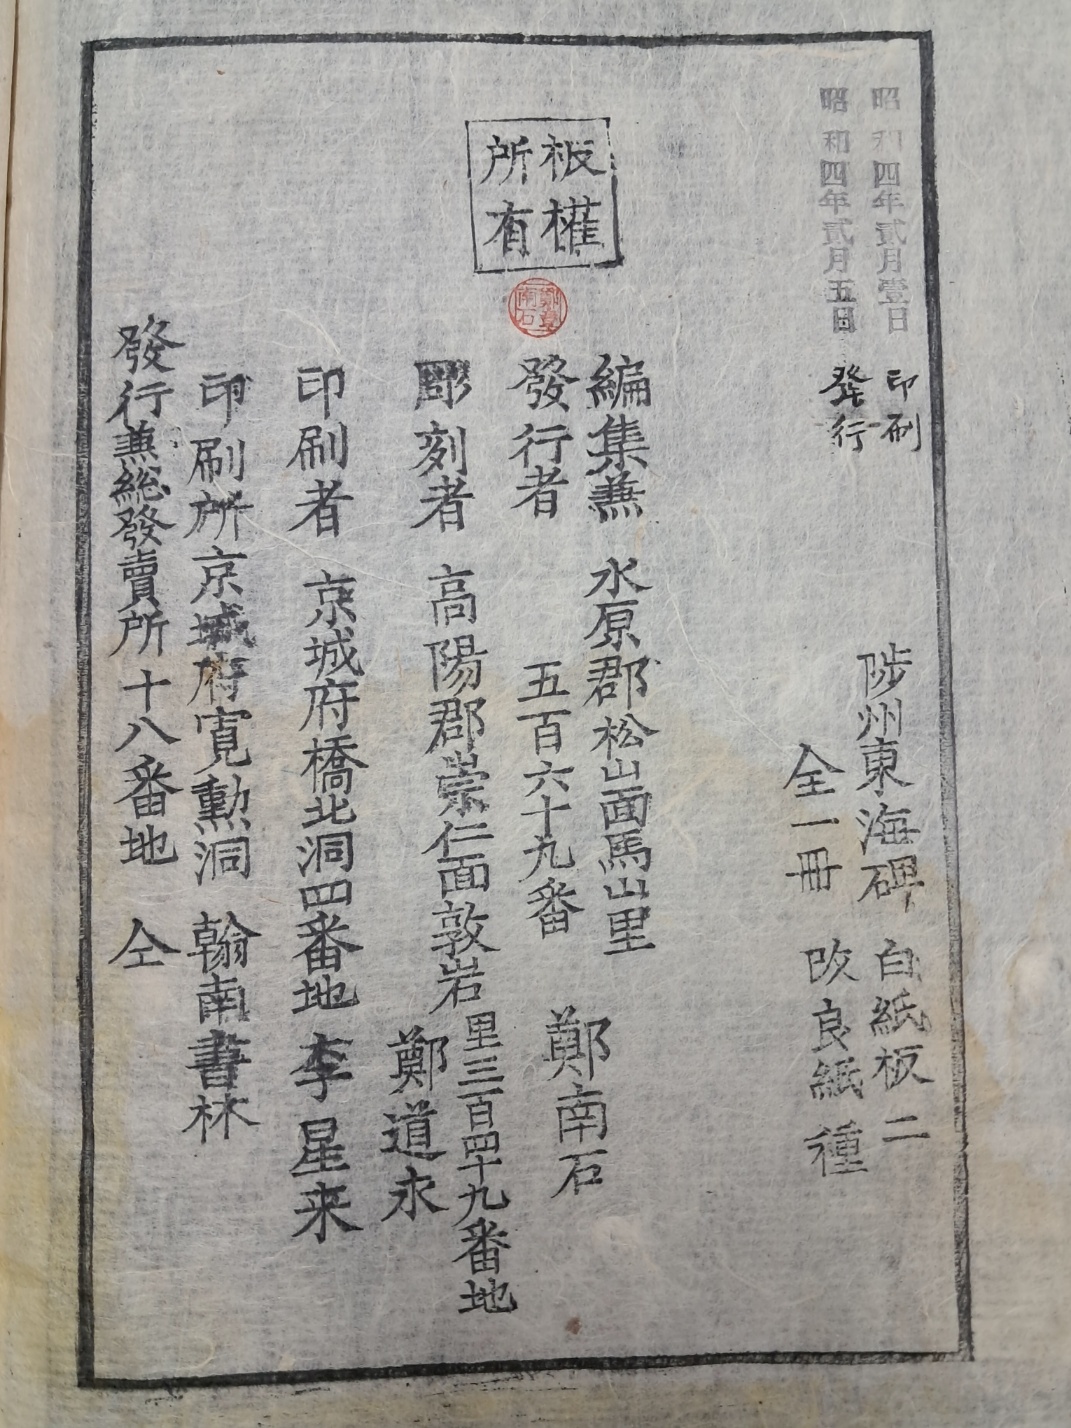 昭和四年貳月壹日 印刷
昭和四年貳月五日 發行
陟州東海碑 白紙板 二
全一冊 改良紙 種
板權
所有
南石
編集兼 水原郡松山面馬山里
發行者 五百六十九番 鄭南石
彫刻者 高陽郡崇仁面敦岩里三百四十九番地
鄭道永
印刷者 京城府橋北洞四番地 李星来
印刷所 京城府寬勳洞 翰南書林
發行兼總發賣所 十八番地 仝